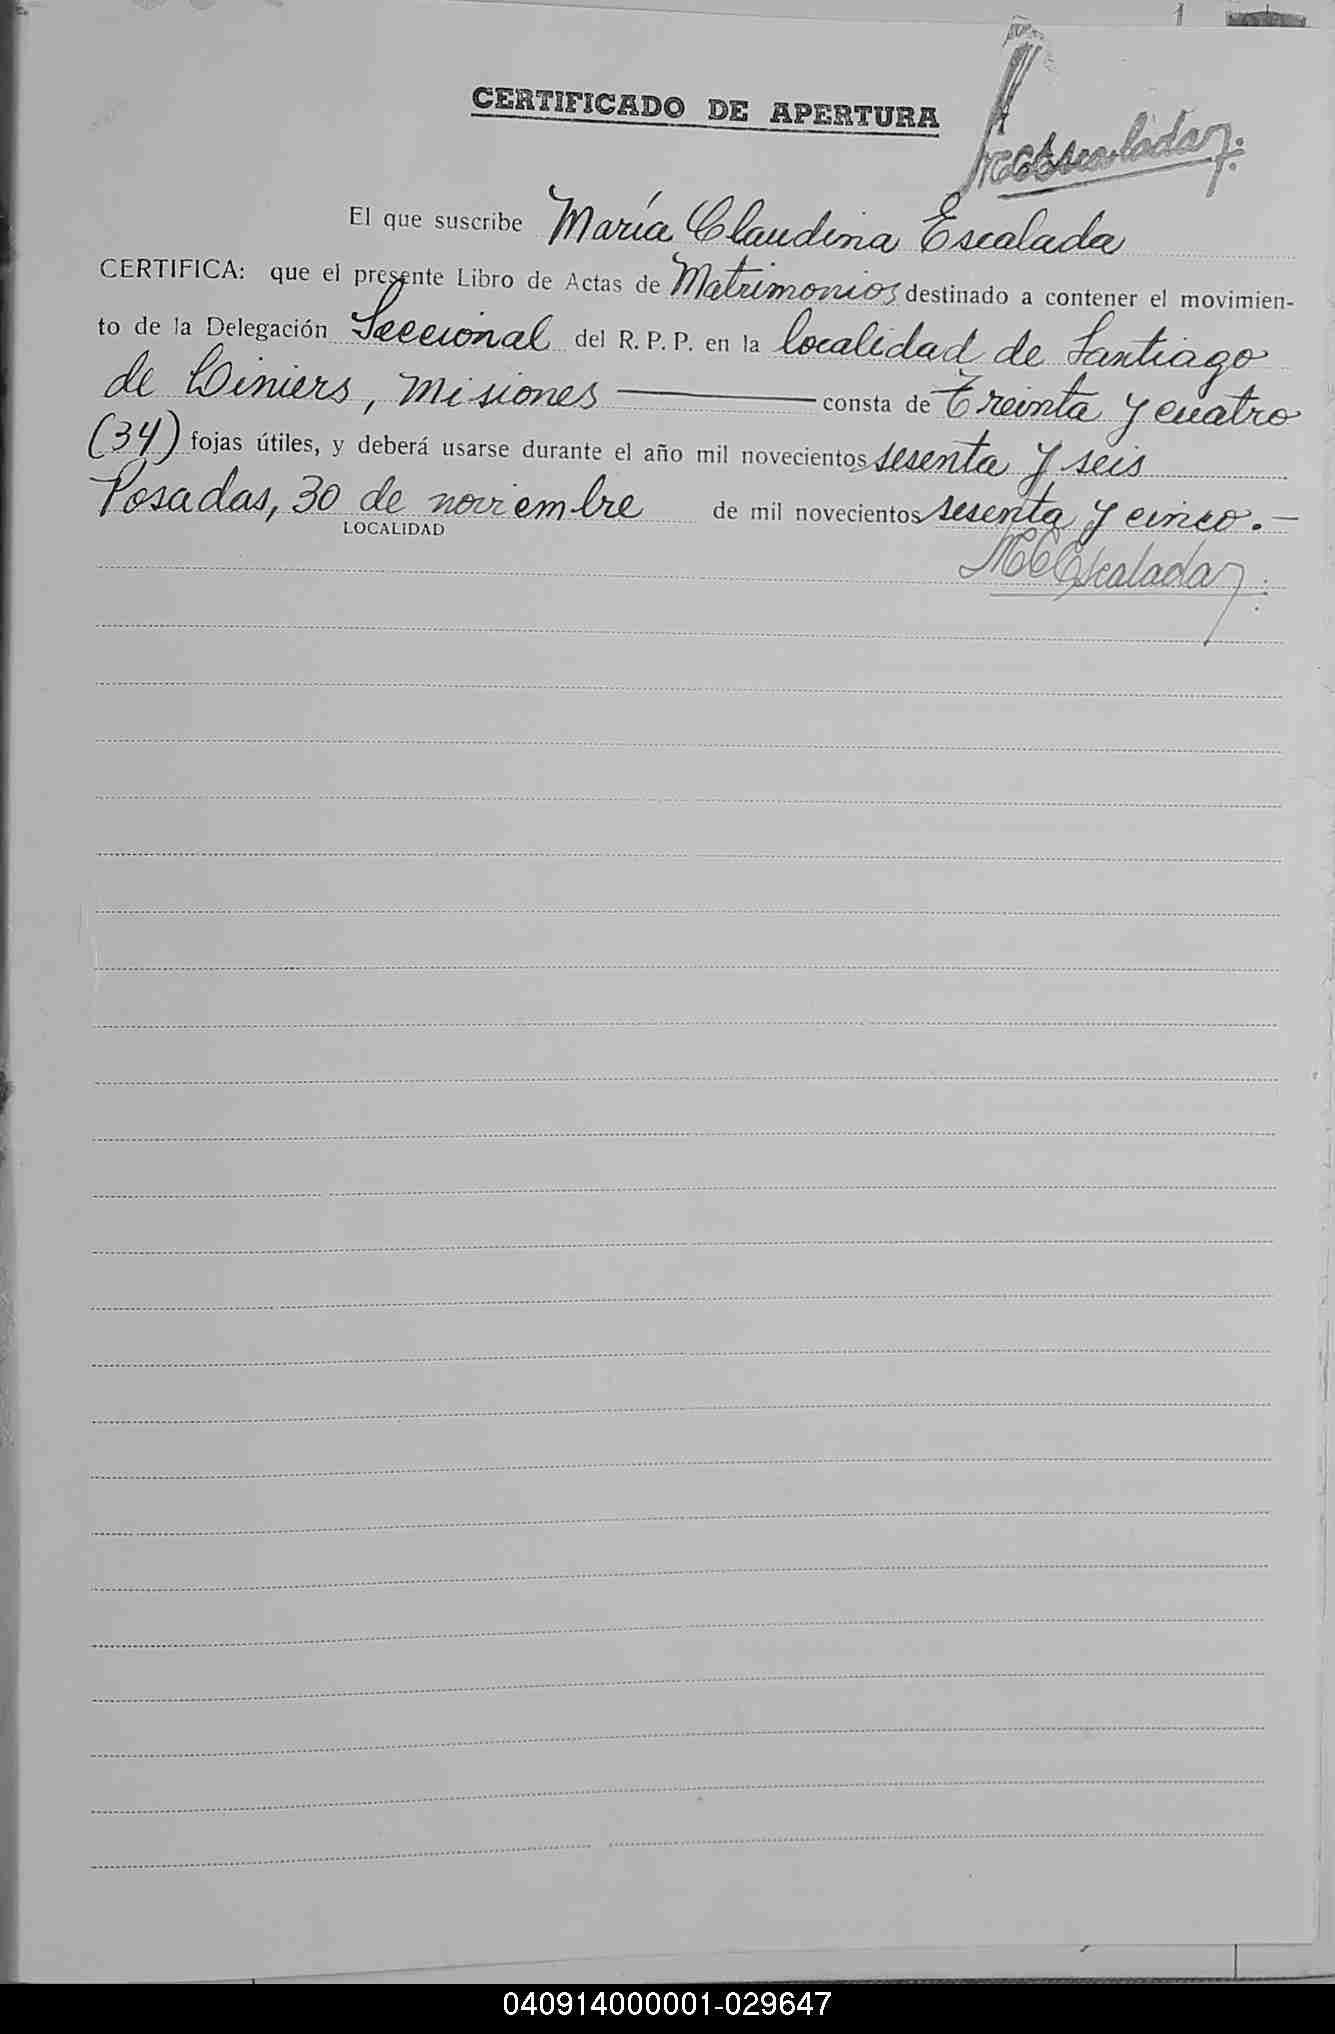 1
CERTIFICADO DE APERTURA
MCEscalada
El que suscribe María Claudina Escalada
CERTIFICA: que el presente Libro de Actas de Matrimonios destinado a contener el movimien-
to de la Delegación Seccional del R. P. P. en la localidad de Santiago
de Liniers, Misiones consta de Treinta y cuatro
(34) fojas útiles, y deberá usarse durante el año mil novecientos sesenta y seis
Posadas, 30 de noviembre de mil novecientos sesenta y cinco.-
LOCALIDAD
MCEscalada
040914000001-029647